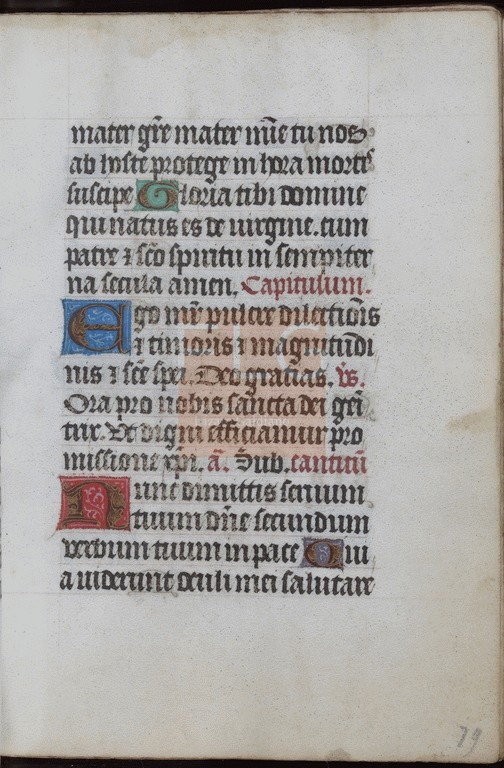 mater gr̄e mater mīe tu nos
ab hoste protege in hora mortꝭ
suscipe Gloria tibi domine
qui natus es de uirgine. cum
patre ⁊ sc̄o spiritu in sempiter
na secula amen. Capitulum.
Ego mr̄ pulcre dilectiōis
⁊ timoris ⁊ magnitūdi
nis ⁊ sc̄e spei. Deo gratias. v̄s.
Ora pro nobis sancta dei gēi
trix. Vt digni efficiamur pro
missione xp̄i. a̅. Sub. canticū
Nunc dimittis seruum
tuum dn̄e secundum
verbum tuum in pace Qui
a uiderunt oculi mei salutare
79